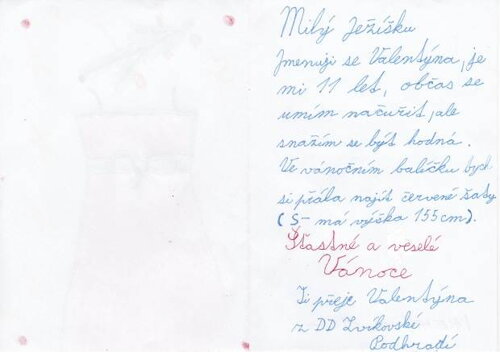 Milý Ježíšku
Jmenuji se Valentýna, je
mi 11 let, občas se
umím načuřit, ale
snažím se být hodná.
Ve vánočním balíčku bych
si přála najít červené šaty
(S - má výška 155cm).
Šťastné a veselé
Vánoce
Ti přeje Valentýna
z DD Zvíkovské
Podhradí